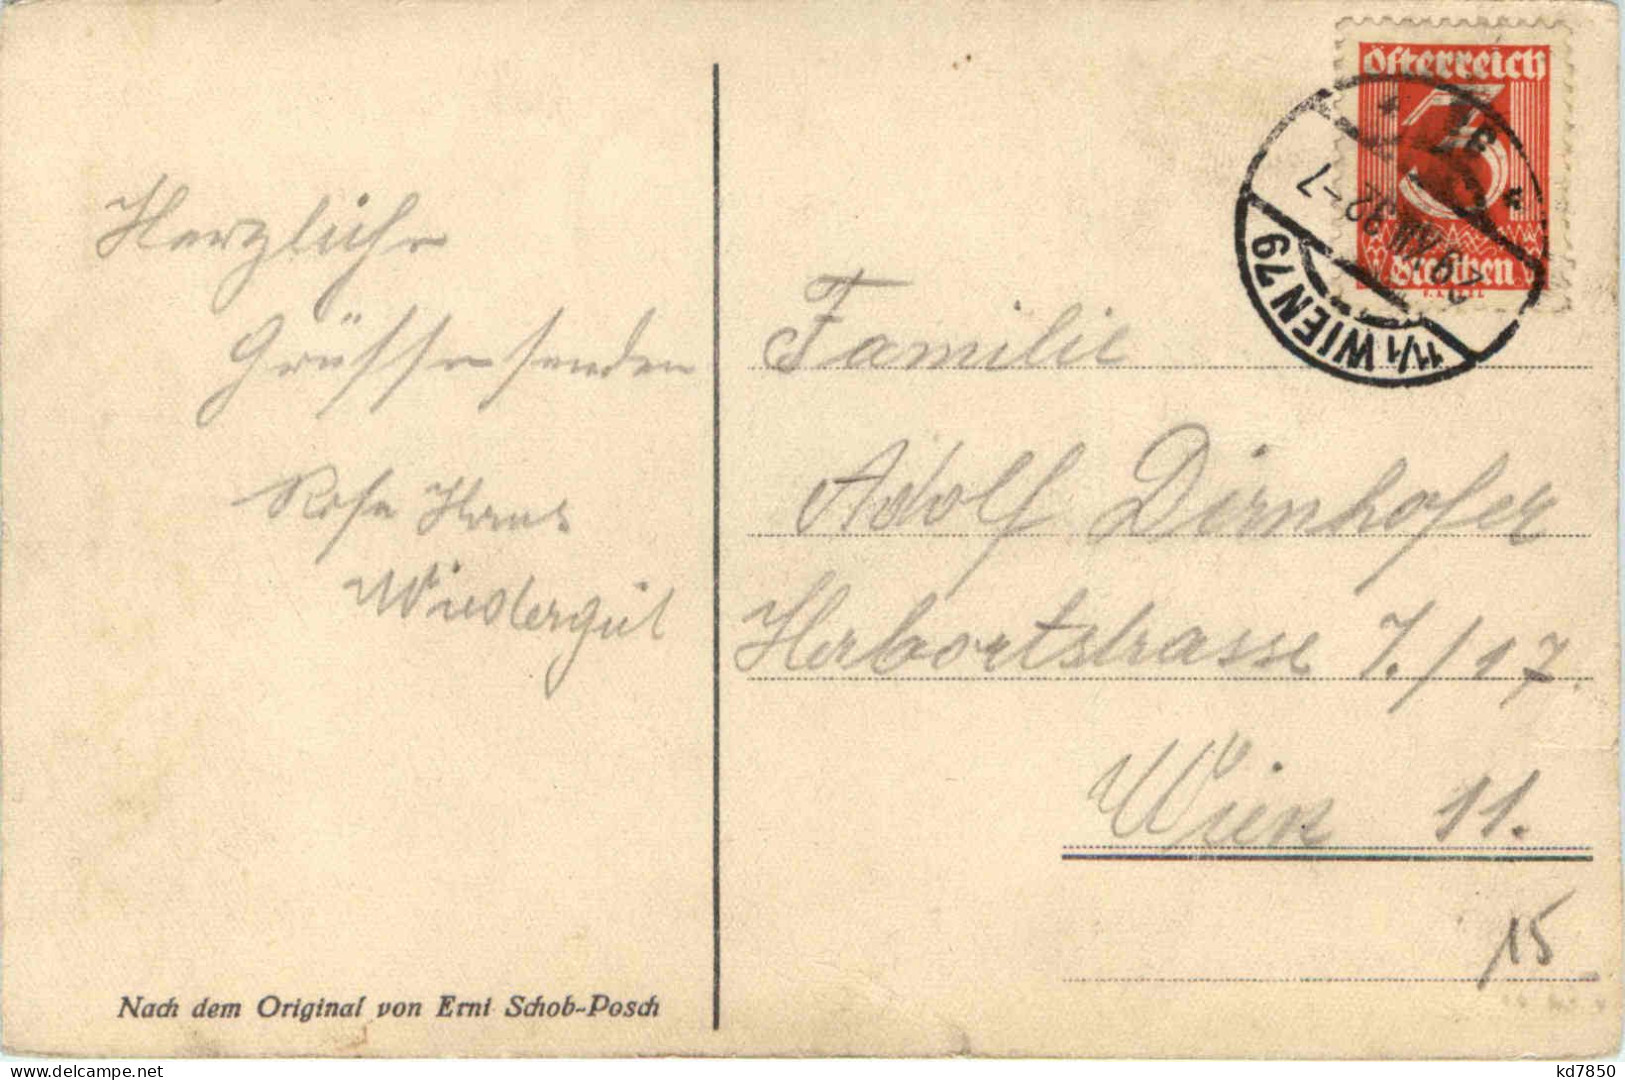 Herzliche
Grüsse senden
Rosa Hans
Wiedergut
Nach dem Original von Erni Schob-Posch
Österreich
3
Groschen
11/1 WIEN 79
29.VIII.32-7
Familie
Adolf Dirnhofer
Herbortstrasse 7./17.
Wien 11.
15
delcampe.net
kd7850